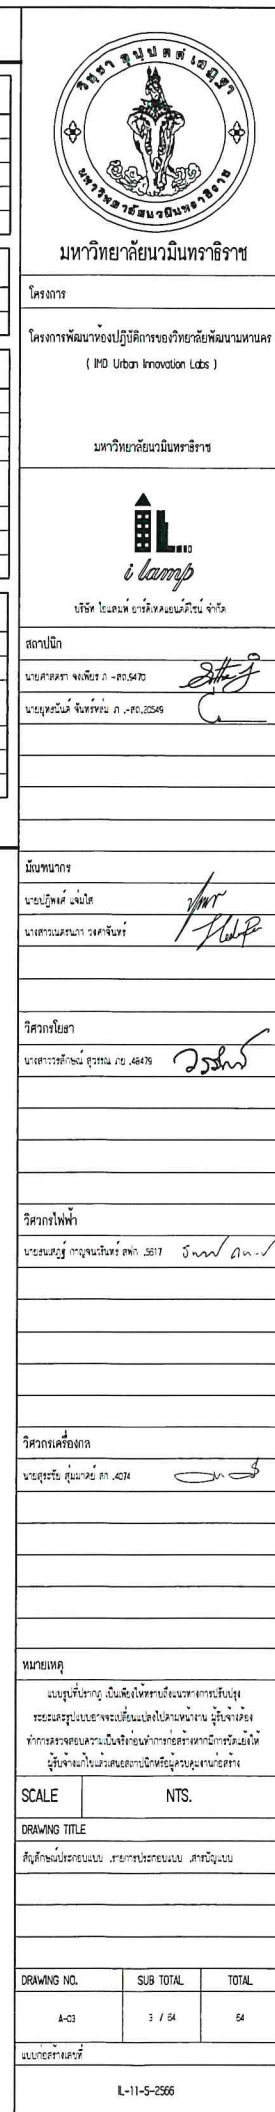 วิชชา อุปปตตํ เสฏฺฐา
มหาวิทยาลัยนวมินทราธิราช
มหาวิทยาลัยนวมินทราธิราช
โครงการ
โครงการพัฒนาห้องปฏิบัติการของวิทยาลัยพัฒนามหานคร
( IMD Urban Innovation Labs )
มหาวิทยาลัยนวมินทราธิราช
i lamp
บริษัท ไอแลมพ์ อาร์คิเทคแอนด์ดีไซน์ จำกัด
สถาปนิก
นายศาสตรา จงเพียร ภ -สถ.9470
นายยุทธนันต์ จันทร์หล่ม ภ .-สถ.20549
มัณฑนากร
นายปฏิพงศ์ แจ่มใส
นางสาวเนตรนภา วงศาจันทร์
วิศวกรโยธา
นางสาววรลักษณ์ สุวรรณ ภย .48479
วิศวกรไฟฟ้า
นายธนเสฏฐ์ กาญจนวรินทร์ สฟก .5617
วิศวกรเครื่องกล
นายสุระชัย สุ่มมาตย์ สก .4074
หมายเหตุ
แบบรูปที่ปรากฎ เป็นเพียงให้ทราบถึงแนวทางการปรับปรุง
ระยะและรูปแบบอาจจะเปลี่ยนแปลงไปตามหน้างาน ผู้รับจ้างต้อง
ทำการตรวจสอบความเป็นจริงก่อนทำการก่อสร้างหากมีการขัดแย้งให้
ผู้รับจ้างแก้ไขแล้วเสนอสถาปนิกหรือผู้ควบคุมงานก่อสร้าง
SCALE NTS.
DRAWING TITLE
สัญลักษณ์ประกอบแบบ ,รายการประกอบแบบ ,สารบัญแบบ
DRAWING NO. SUB TOTAL TOTAL
A-03 3 / 64 64
แบบก่อสร้างเลขที่
IL-11-5-2566